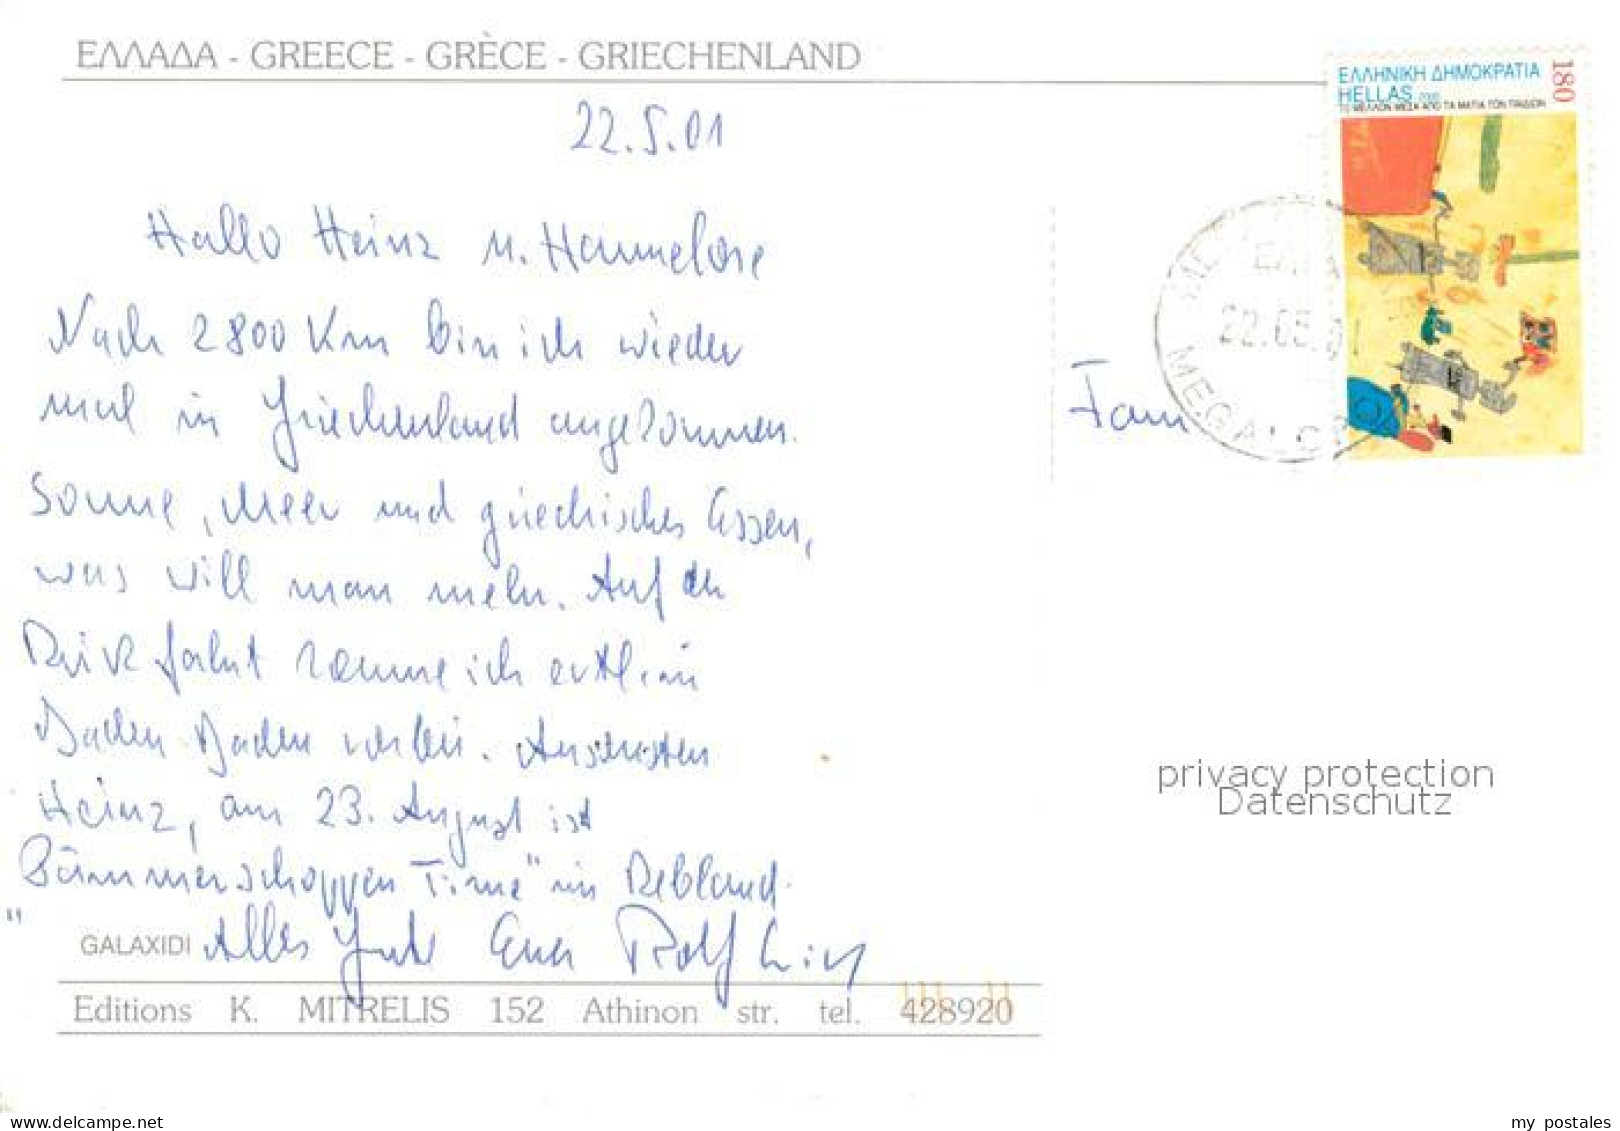 ΕΛΛΑΔΑ - GREECE - GRÈCE - GRIECHENLAND
ΕΛΛΗΝΙΚΗ ΔΗΜΟΚΡΑΤΙΑ 180
HELLAS 2000
ΤΟ ΜΕΛΛΟΝ ΜΕΣΑ ΑΠΟ ΤΑ ΜΑΤΙΑ ΤΩΝ ΠΑΙΔΙΩΝ
22.5.01
Hallo Heinz u. Hannelore
Nach 2800 Km bin ich wieder
mal in Griechenland angekommen.
Sonne, Meer und griechisches Essen,
was will man mehr. Auf der
Rückfahrt komme ich evtl. in
Baden Baden vorbei. Ansonsten
Heinz, am 23. August ist
"Dämmerschoppen Time" im Rebland.
Alles Gute Euer Rolf
22.05.01
Fam
privacy protection
Datenschutz
GALAXIDI
Editions K. MITRELIS 152 Athinon str. tel. 428920
www.delcampe.net
my_postales